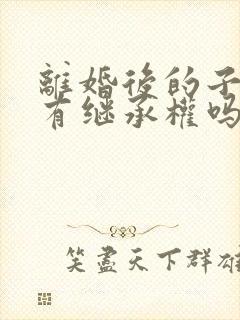 離婚後的子
有继承權吗
笑盡天下群雄